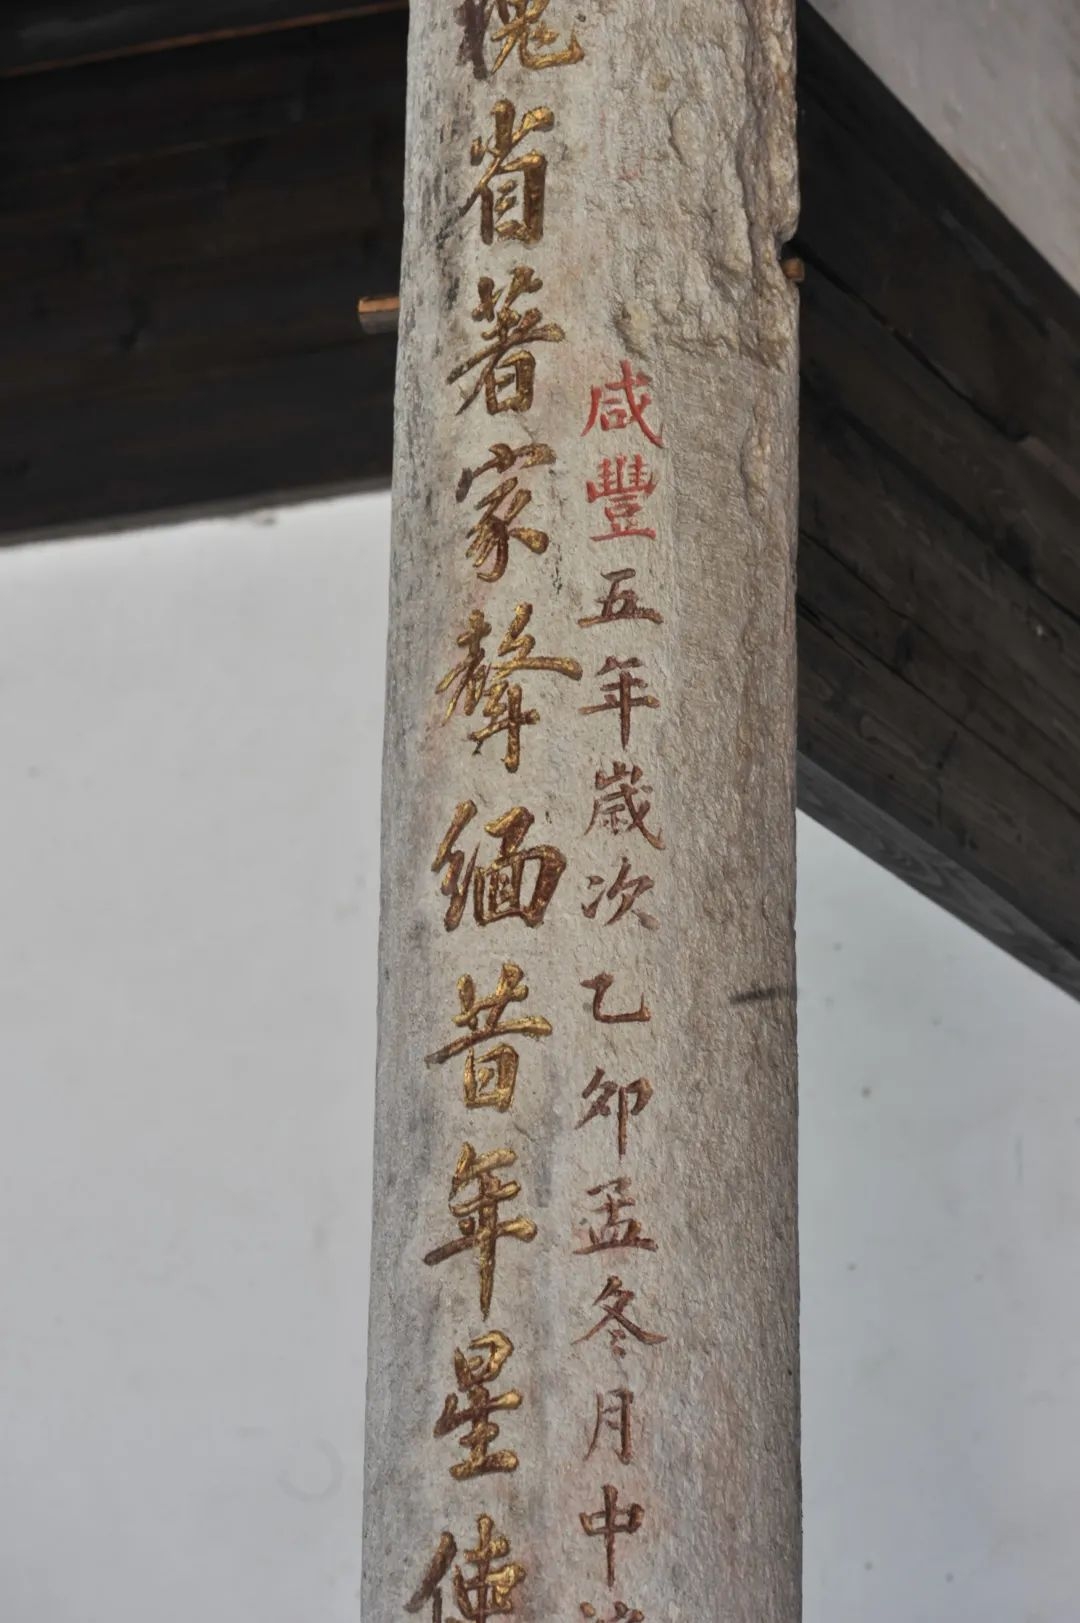 咸豐五年嵗次乙卯孟冬月中
槐省著家聲緬昔年星使